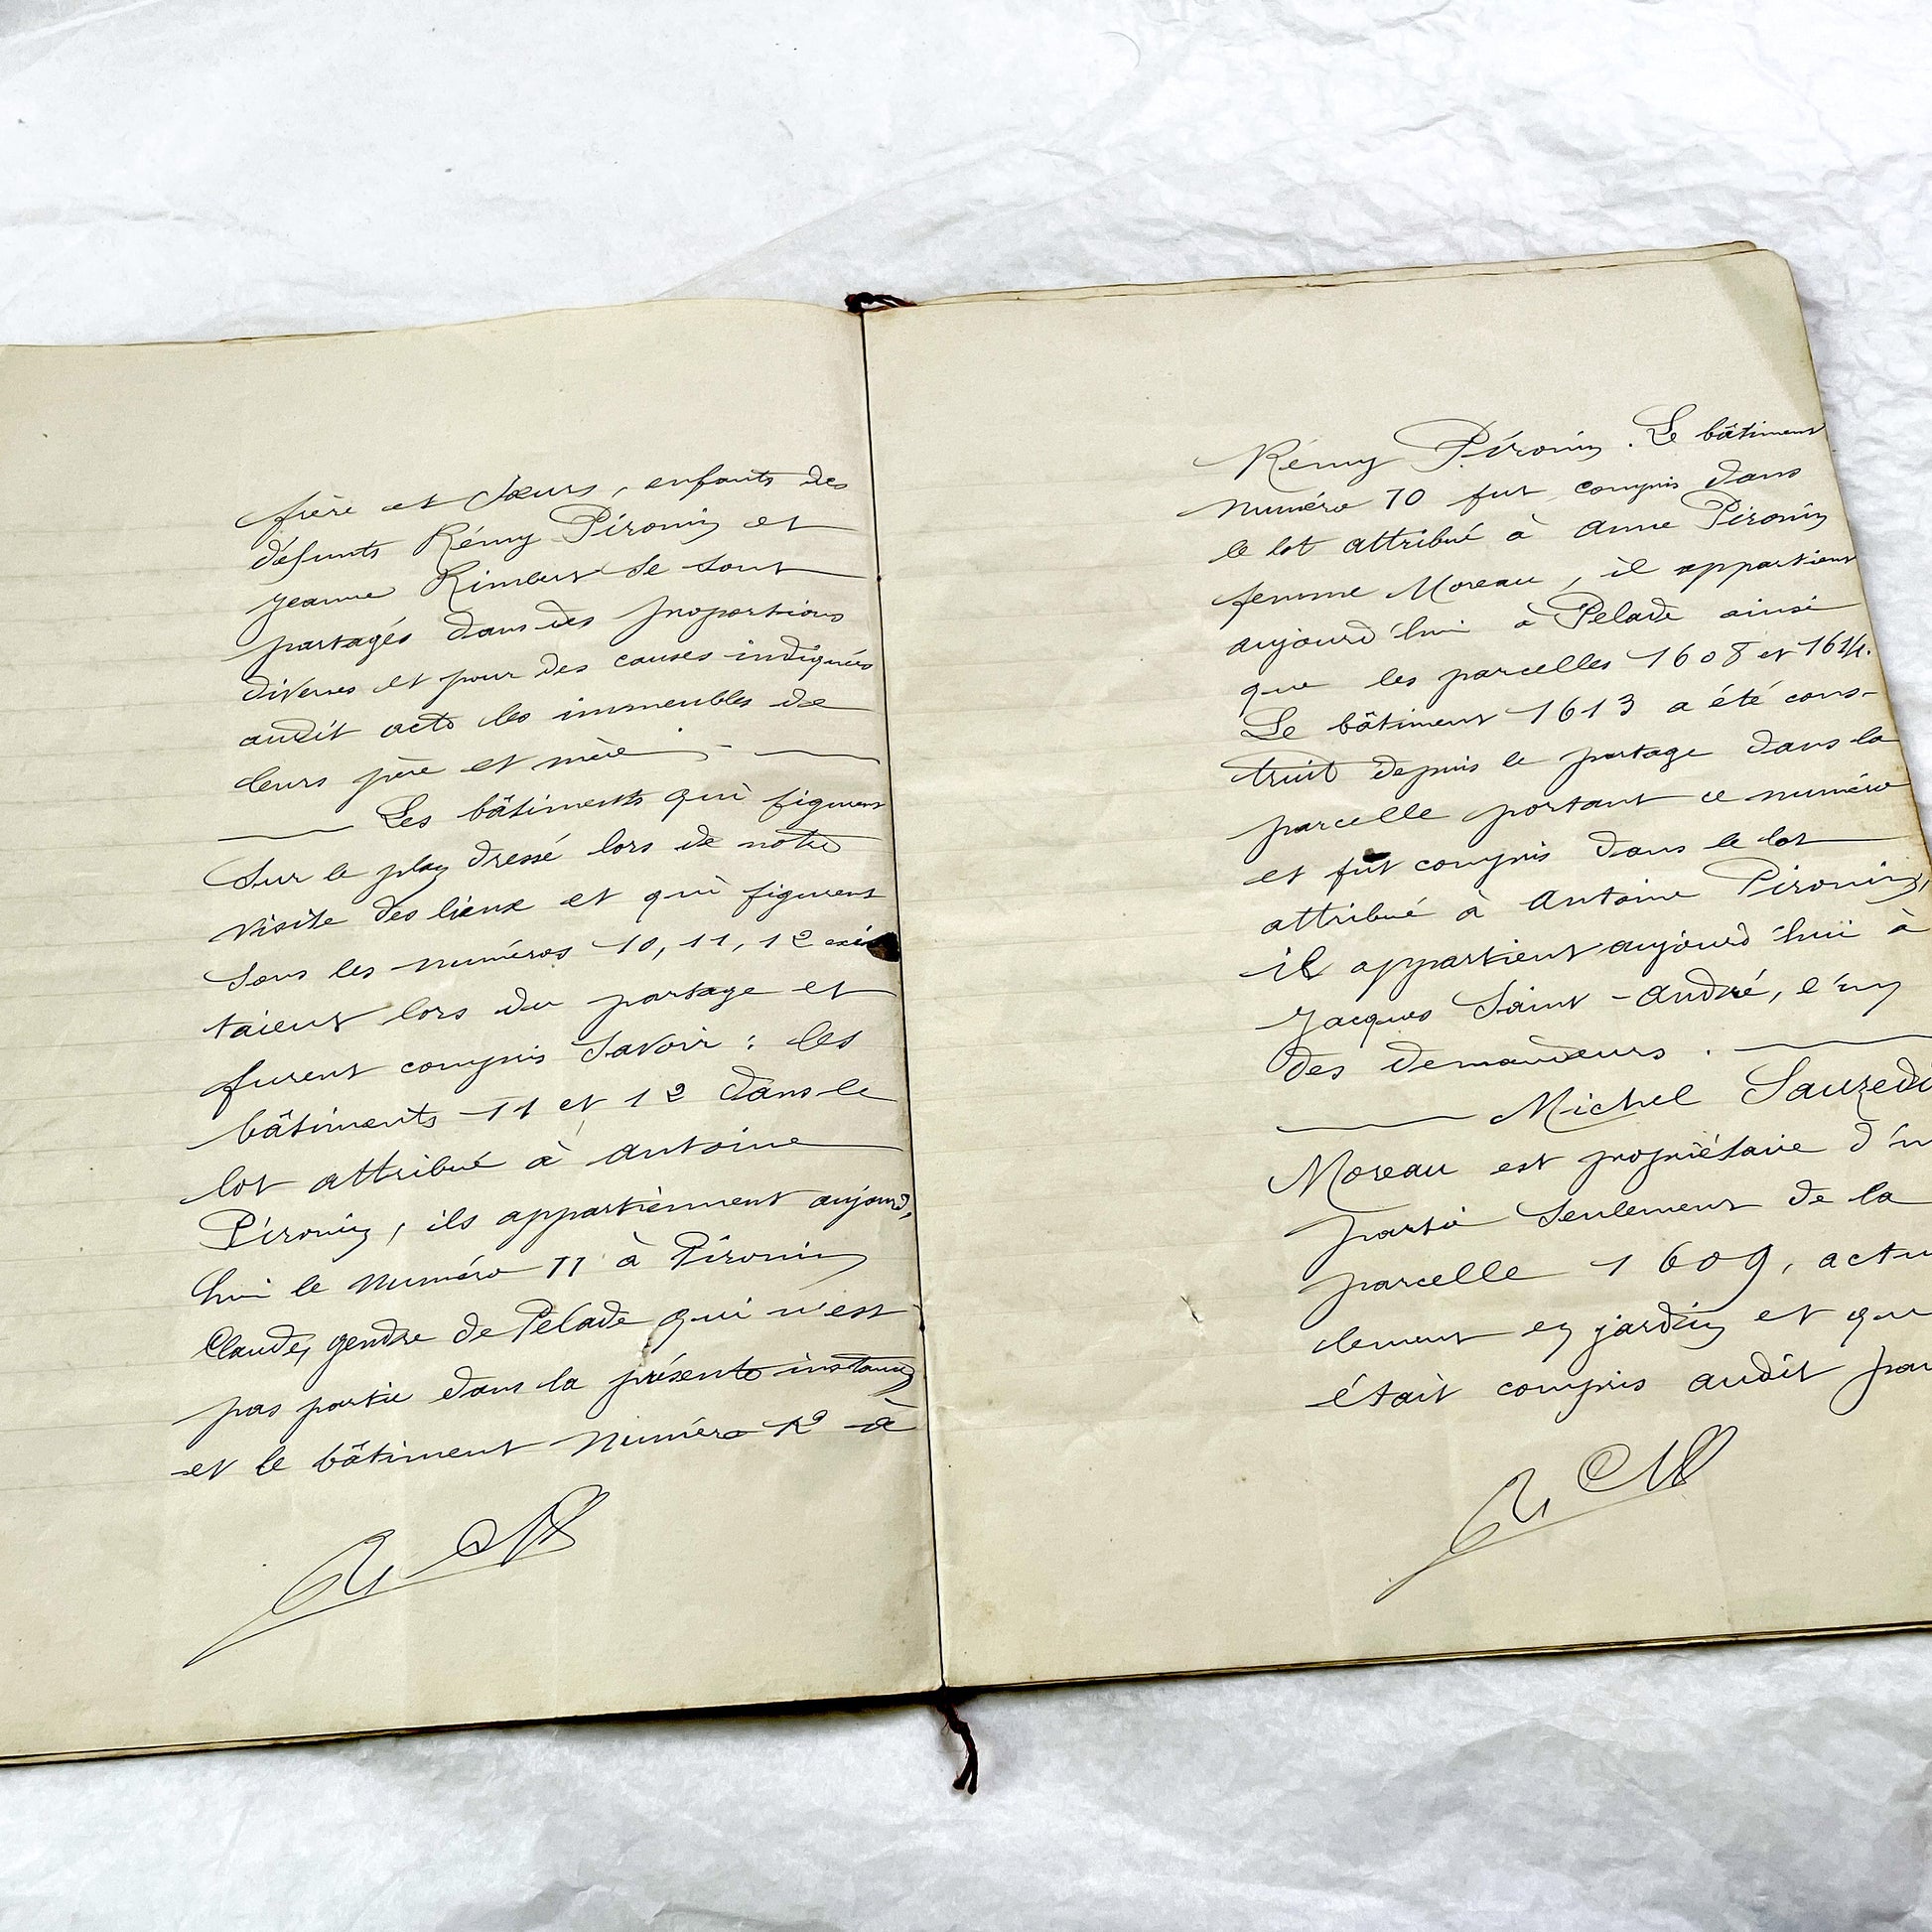 frère et sœurs, enfants des
défunts Rémy Pironin et
Jeanne Rimbert se sont
partagés dans des proportions
diverses et pour des causes indiquées
audit acte les immeubles de
leurs père et mère.
Les bâtiments qui figurent
sur le plan dressé lors de notre
visite des lieux et qui figurent
sous les numéros 10, 11, 12 exis
taient lors du partage et
furent compris savoir : les
bâtiments 11 et 12 dans le
lot attribué à Antoine
Pironin, ils appartiennent aujourd'
hui le numéro 11 à Pironin
Claude, gendre de Pelade qui n'est
pas partie dans la présente instance
et le bâtiment numéro 12 à
Rémy Pironin. Le bâtiment
numéro 10 fut compris dans
le lot attribué à Anne Pironin
femme Moreau, il appartient
aujourd'hui à Pelade ainsi
que les parcelles 1608 et 1614.
Le bâtiment 1613 a été cons-
truit depuis le partage dans la
parcelle portant ce numéro
et fut compris dans le lot
attribué à Antoine Pironin,
il appartient aujourd'hui à
Jacques Saint-André, l'un
des demandeurs.
Michel Sauzedd
Moreau est propriétaire d'u
partie seulement de la
parcelle 1609, actu
lement en jardin et qu
était compris audit par